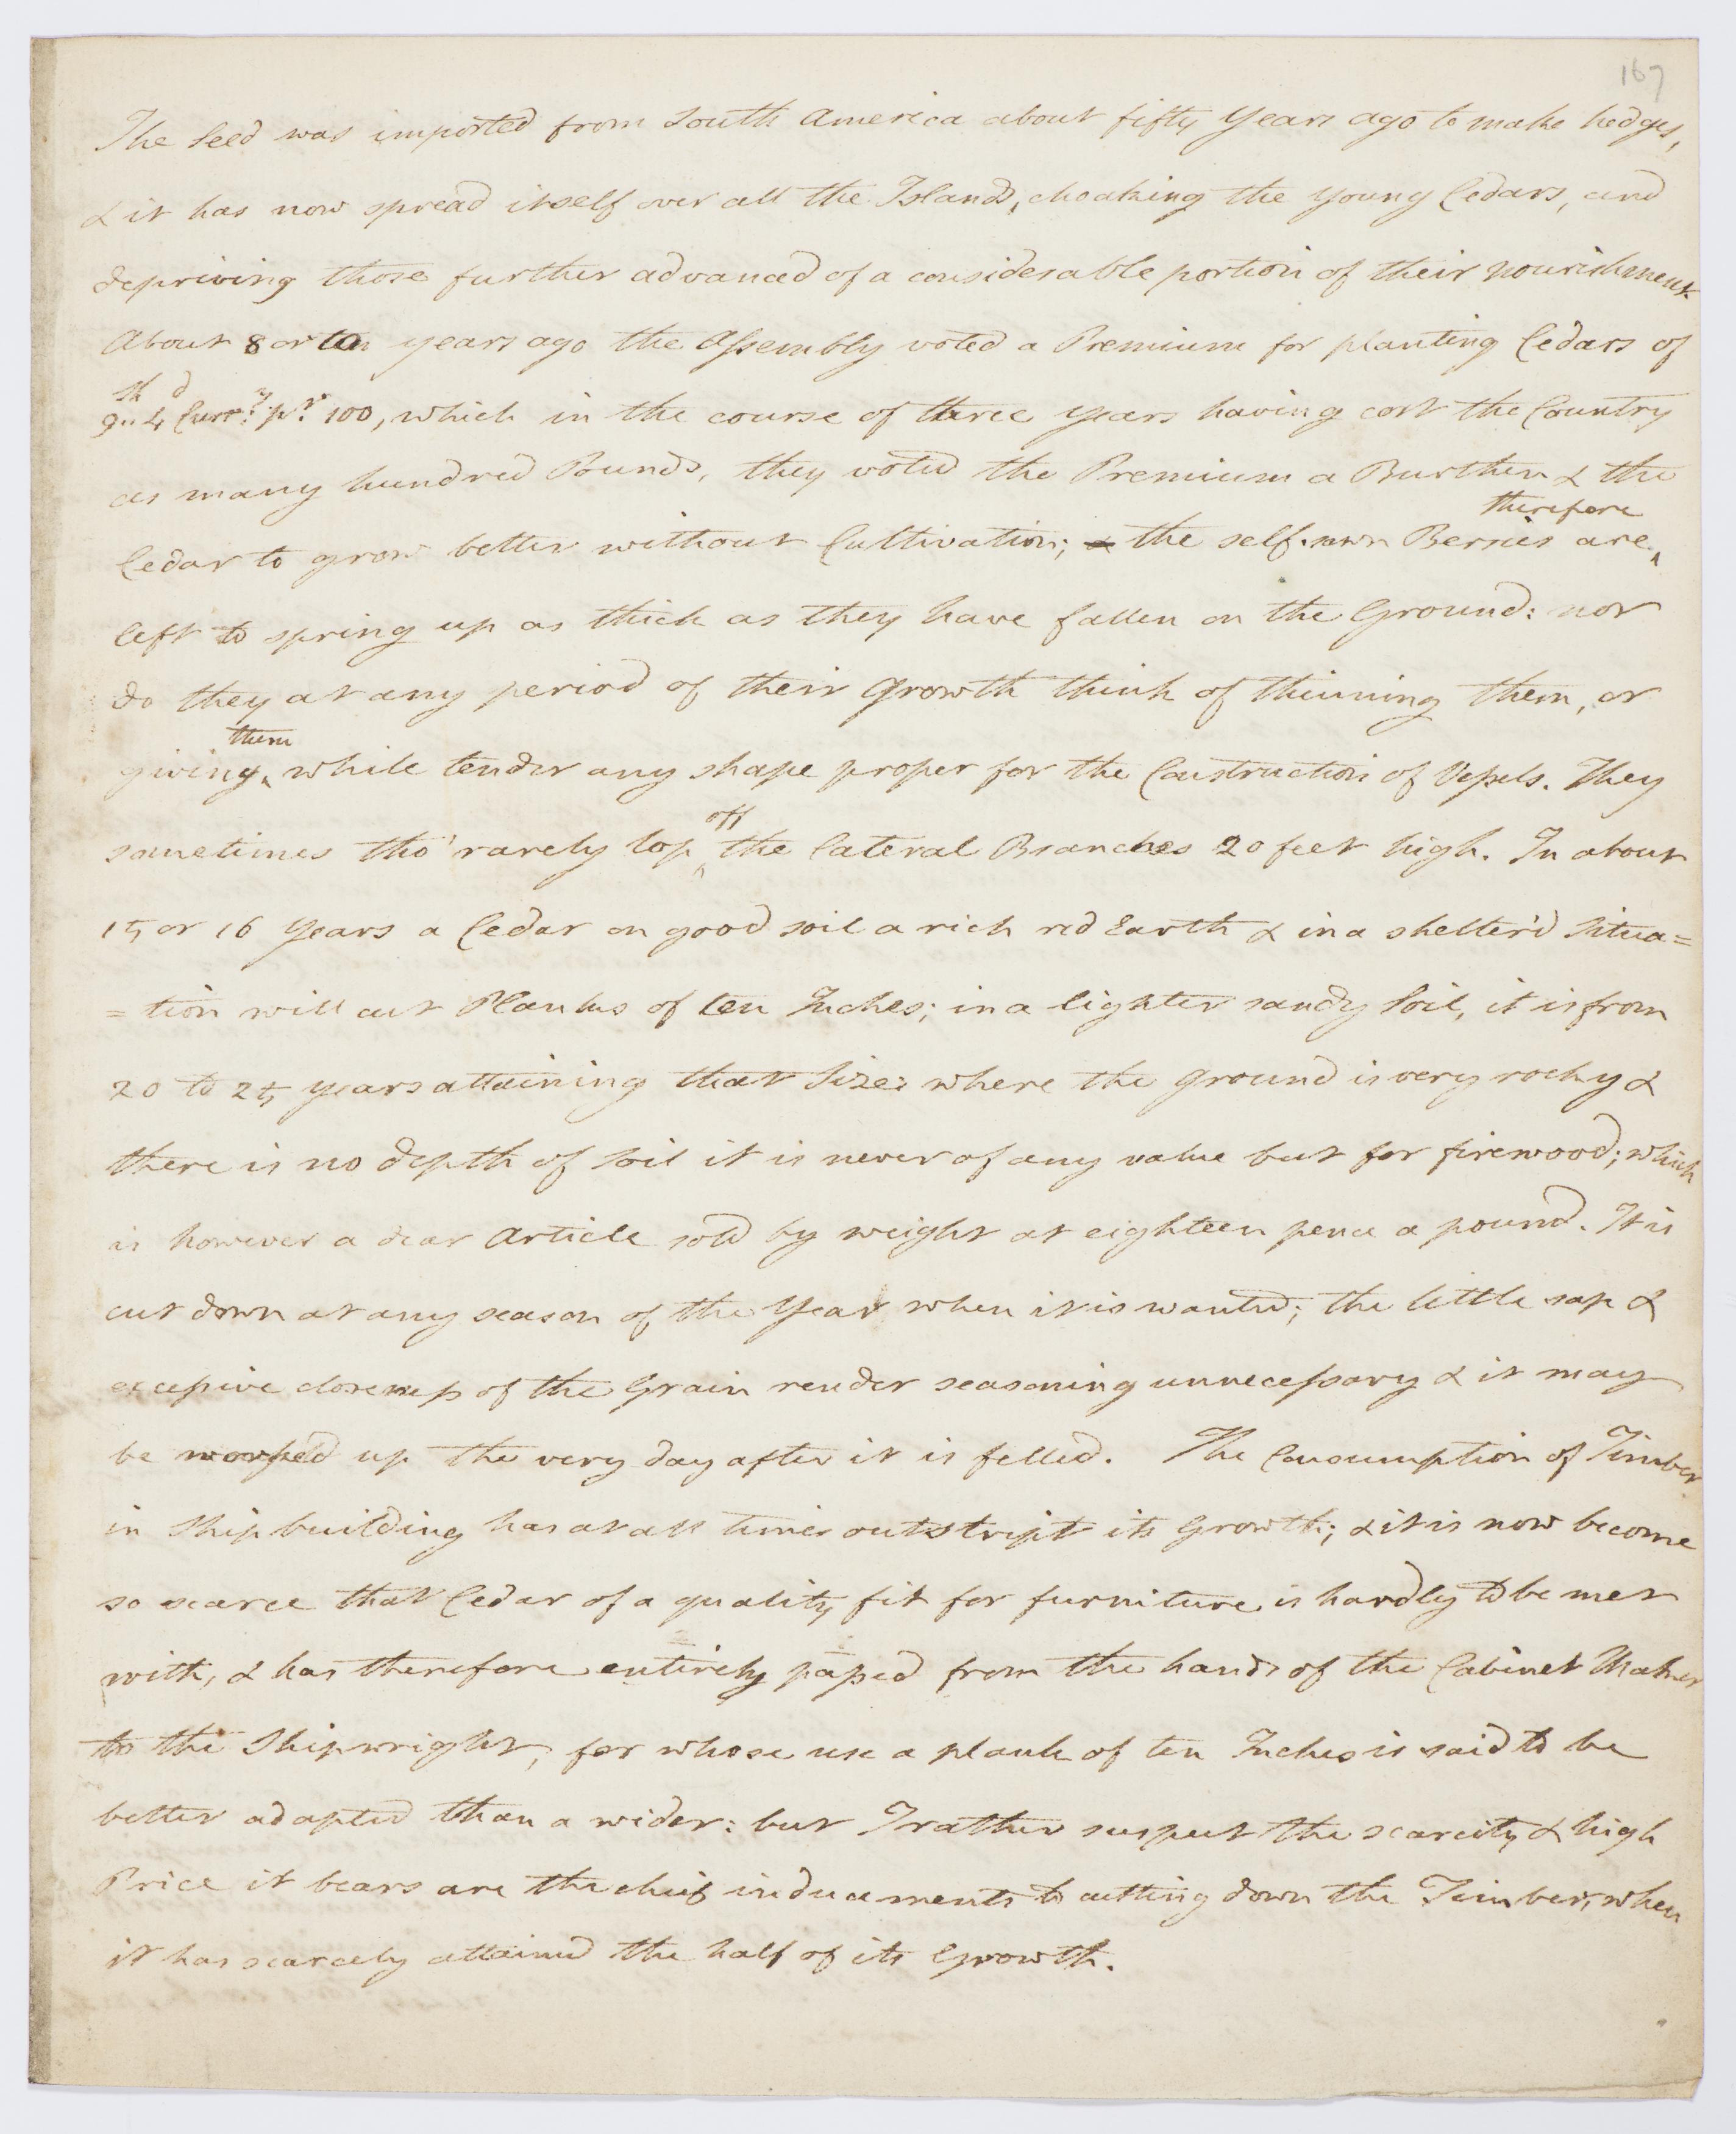 167
The Seed was imported from South America about fifty Years ago to make hedges,
& it has now spread itself over all the Island, choaking the young Cedars, and
depriving those further advanced of a considerable portion of their nourishment
About 8 or ten years ago the Assembly voted a Premium for planting Cedars of
sh d
9,, 4 Curr.y pr. 100, which in the course of three years having cost the Country
as many hundred Pounds, they voted the Premium a Burthen & the
therefore
Cedar to grow better without Cultivation; & the self-sown Berries are ‸
left to spring up as thick as they have fallen on the Ground: nor
do they at any period of their growth think of thinning them, or
them
giving ‸ while tender any shape proper for the Construction of Vessels. They
off
sometimes tho' rarely lop ‸ the lateral Branches 20 feet high. In about
15 or 16 Years a Cedar on good soil a rich red Earth & in a shelter'd Situa=
=tion will cut Planks of ten Inches; in a lighter sandy Soil, it is from
20 to 25 years attaining that Size: where the ground is very rocky &
there is no depth of Soil it is never of any value but for firewood; which
is however a dear Article sold by weight at eighteen pence a pound. It is
cut down at any season of the Year when it is wanted; the little sap &
excessive closeness of the Grain render seasoning unnecessary & it may
be worked up the very day after it is felled. The Consumption of Timber
in Ship building has at all times outstript its Growth; & it is now become
so scarce that Cedar of a quality fit for furniture is hardly to be met
with, & has therefore entirely passed from the hands of the Cabinet Maker
to the Shipwright, for whose use a plank of ten Inches is said to be
better adapted than a wider: but I rather suspect the scarcity & high
Price it bears are the cheif inducements to cutting down the Timber, when
it has scarcely attained the half of its Growth.